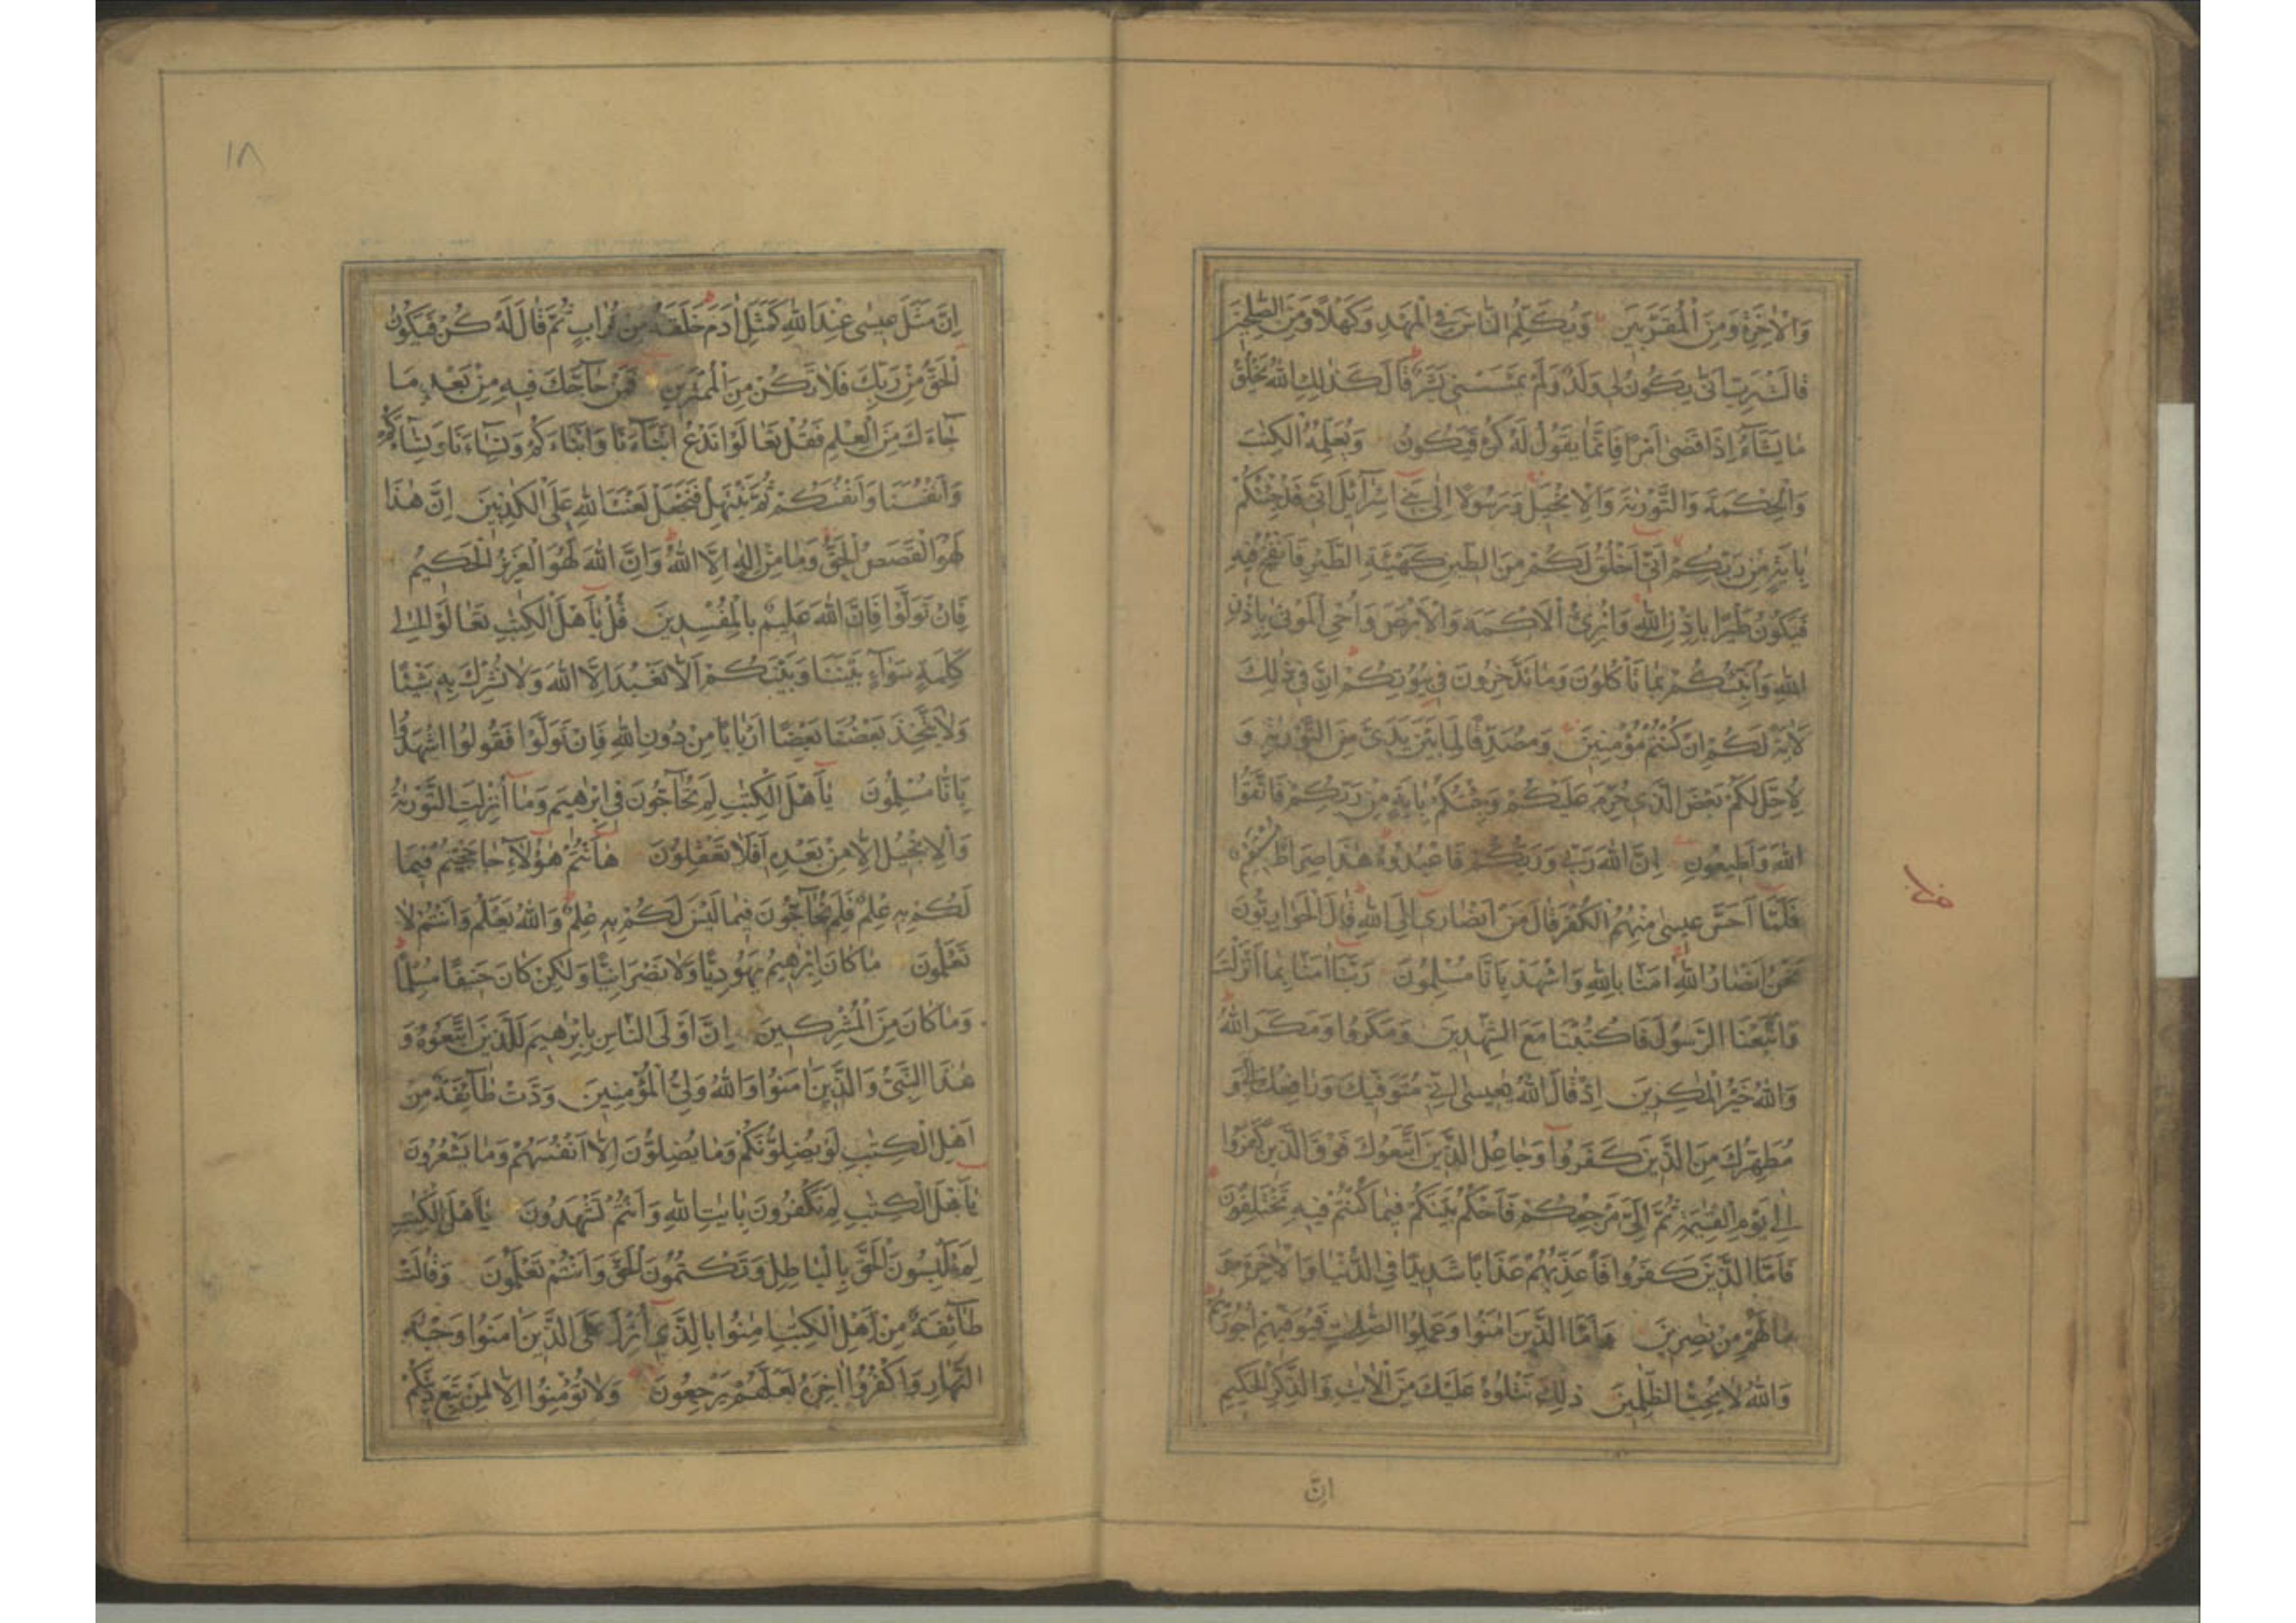 وَالْاٰخِرَةِ وَمِنَ الْمُقَرَّبِينَ وَيُكَلِّمُ النَّاسَ فِي الْمَهْدِ وَكَهْلًا وَمِنَ الصّٰلِحِينَ
قَالَتْ رَبِّ اَنّٰى يَكُونُ لِي وَلَدٌ وَلَمْ يَمْسَسْنِي بَشَرٌ قَالَ كَذٰلِكِ اللّٰهُ يَخْلُقُ
مَا يَشَاۤءُ اِذَا قَضٰى اَمْرًا فَاِنَّمَا يَقُولُ لَهُ كُنْ فَيَكُونُ وَيُعَلِّمُهُ الْكِتٰبَ
وَالْحِكْمَةَ وَالتَّوْرٰىةَ وَالْاِنْجِيلَ وَرَسُولًا اِلٰى بَنِي اِسْرَاۤئِلَ اَنِّي قَدْ جِئْتُكُمْ
بِاٰيَةٍ مِنْ رَبِّكُمْ اَنِّي اَخْلُقُ لَكُمْ مِنَ الطِّينِ كَهَيْئَةِ الطَّيْرِ فَاَنْفُخُ فِيهِ
فَيَكُونُ طَيْرًا بِاِذْنِ اللّٰهِ وَاُبْرِئُ الْاَكْمَهَ وَالْاَبْرَصَ وَاُحْيِ الْمَوْتٰى بِاِذْنِ
اللّٰهِ وَاُنَبِّئُكُمْ بِمَا تَأْكُلُونَ وَمَا تَدَّخِرُونَ فِي بُيُوتِكُمْ اِنَّ فِي ذٰلِكَ
لَاٰيَةً لَكُمْ اِنْ كُنْتُمْ مُؤْمِنِينَ وَمُصَدِّقًا لِمَا بَيْنَ يَدَيَّ مِنَ التَّوْرٰىةِ وَ
لِاُحِلَّ لَكُمْ بَعْضَ الَّذِي حُرِّمَ عَلَيْكُمْ وَجِئْتُكُمْ بِاٰيَةٍ مِنْ رَبِّكُمْ فَاتَّقُوا
اللّٰهَ وَاَطِيعُونِ اِنَّ اللّٰهَ رَبِّي وَرَبُّكُمْ فَاعْبُدُوهُ هٰذَا صِرَاطٌ مُسْتَقِيمٌ
فَلَمَّا اَحَسَّ عِيسٰى مِنْهُمُ الْكُفْرَ قَالَ مَنْ اَنْصَارِي اِلَى اللّٰهِ قَالَ الْحَوَارِيُّونَ
نَحْنُ اَنْصَارُ اللّٰهِ اٰمَنَّا بِاللّٰهِ وَاشْهَدْ بِاَنَّا مُسْلِمُونَ رَبَّنَا اٰمَنَّا بِمَا اَنْزَلْتَ
وَاتَّبَعْنَا الرَّسُولَ فَاكْتُبْنَا مَعَ الشّٰهِدِينَ وَمَكَرُوا وَمَكَرَ اللّٰهُ
وَاللّٰهُ خَيْرُ الْمٰكِرِينَ اِذْ قَالَ اللّٰهُ يٰعِيسٰى اِنِّي مُتَوَفِّيكَ وَرَافِعُكَ اِلَيَّ وَ
مُطَهِّرُكَ مِنَ الَّذِينَ كَفَرُوا وَجَاعِلُ الَّذِينَ اتَّبَعُوكَ فَوْقَ الَّذِينَ كَفَرُوا
اِلٰى يَوْمِ الْقِيٰمَةِ ثُمَّ اِلَيَّ مَرْجِعُكُمْ فَاَحْكُمُ بَيْنَكُمْ فِيمَا كُنْتُمْ فِيهِ تَخْتَلِفُونَ
فَاَمَّا الَّذِينَ كَفَرُوا فَاُعَذِّبُهُمْ عَذَابًا شَدِيدًا فِي الدُّنْيَا وَالْاٰخِرَةِ وَ
مَا لَهُمْ مِنْ نٰصِرِينَ وَاَمَّا الَّذِينَ اٰمَنُوا وَعَمِلُوا الصّٰلِحٰتِ فَيُوَفِّيهِمْ اُجُورَهُمْ
وَاللّٰهُ لَا يُحِبُّ الظّٰلِمِينَ ذٰلِكَ نَتْلُوهُ عَلَيْكَ مِنَ الْاٰيٰتِ وَالذِّكْرِ الْحَكِيمِ
اِنَّ
١٨
اِنَّ مَثَلَ عِيسٰى عِنْدَ اللّٰهِ كَمَثَلِ اٰدَمَ خَلَقَهُ مِنْ تُرَابٍ ثُمَّ قَالَ لَهُ كُنْ فَيَكُونُ
اَلْحَقُّ مِنْ رَبِّكَ فَلَا تَكُنْ مِنَ الْمُمْتَرِينَ فَمَنْ حَاۤجَّكَ فِيهِ مِنْ بَعْدِ مَا
جَاۤءَكَ مِنَ الْعِلْمِ فَقُلْ تَعَالَوْا نَدْعُ اَبْنَاۤءَنَا وَاَبْنَاۤءَكُمْ وَنِسَاۤءَنَا وَنِسَاۤءَكُمْ
وَاَنْفُسَنَا وَاَنْفُسَكُمْ ثُمَّ نَبْتَهِلْ فَنَجْعَلْ لَعْنَتَ اللّٰهِ عَلَى الْكٰذِبِينَ اِنَّ هٰذَا
لَهُوَ الْقَصَصُ الْحَقُّ وَمَا مِنْ اِلٰهٍ اِلَّا اللّٰهُ وَاِنَّ اللّٰهَ لَهُوَ الْعَزِيزُ الْحَكِيمُ
فَاِنْ تَوَلَّوْا فَاِنَّ اللّٰهَ عَلِيمٌ بِالْمُفْسِدِينَ قُلْ يٰۤاَهْلَ الْكِتٰبِ تَعَالَوْا اِلٰى
كَلِمَةٍ سَوَاۤءٍ بَيْنَنَا وَبَيْنَكُمْ اَلَّا نَعْبُدَ اِلَّا اللّٰهَ وَلَا نُشْرِكَ بِهِ شَيْئًا
وَلَا يَتَّخِذَ بَعْضُنَا بَعْضًا اَرْبَابًا مِنْ دُونِ اللّٰهِ فَاِنْ تَوَلَّوْا فَقُولُوا اشْهَدُوا
بِاَنَّا مُسْلِمُونَ يٰۤاَهْلَ الْكِتٰبِ لِمَ تُحَاۤجُّونَ فِي اِبْرٰهِيمَ وَمَا اُنْزِلَتِ التَّوْرٰىةُ
وَالْاِنْجِيلُ اِلَّا مِنْ بَعْدِهِ اَفَلَا تَعْقِلُونَ هٰۤاَنْتُمْ هٰۤؤُلَاۤءِ حَاجَجْتُمْ فِيمَا
لَكُمْ بِهِ عِلْمٌ فَلِمَ تُحَاۤجُّونَ فِيمَا لَيْسَ لَكُمْ بِهِ عِلْمٌ وَاللّٰهُ يَعْلَمُ وَاَنْتُمْ لَا
تَعْلَمُونَ مَا كَانَ اِبْرٰهِيمُ يَهُودِيًّا وَلَا نَصْرَانِيًّا وَلٰكِنْ كَانَ حَنِيفًا مُسْلِمًا
وَمَا كَانَ مِنَ الْمُشْرِكِينَ اِنَّ اَوْلَى النَّاسِ بِاِبْرٰهِيمَ لَلَّذِينَ اتَّبَعُوهُ وَ
هٰذَا النَّبِيُّ وَالَّذِينَ اٰمَنُوا وَاللّٰهُ وَلِيُّ الْمُؤْمِنِينَ وَدَّتْ طَاۤئِفَةٌ مِنْ
اَهْلِ الْكِتٰبِ لَوْ يُضِلُّونَكُمْ وَمَا يُضِلُّونَ اِلَّا اَنْفُسَهُمْ وَمَا يَشْعُرُونَ
يٰۤاَهْلَ الْكِتٰبِ لِمَ تَكْفُرُونَ بِاٰيٰتِ اللّٰهِ وَاَنْتُمْ تَشْهَدُونَ يٰۤاَهْلَ الْكِتٰبِ
لِمَ تَلْبِسُونَ الْحَقَّ بِالْبَاطِلِ وَتَكْتُمُونَ الْحَقَّ وَاَنْتُمْ تَعْلَمُونَ وَقَالَتْ
طَاۤئِفَةٌ مِنْ اَهْلِ الْكِتٰبِ اٰمِنُوا بِالَّذِي اُنْزِلَ عَلَى الَّذِينَ اٰمَنُوا وَجْهَ
النَّهَارِ وَاكْفُرُوا اٰخِرَهُ لَعَلَّهُمْ يَرْجِعُونَ وَلَا تُؤْمِنُوا اِلَّا لِمَنْ تَبِعَ دِينَكُمْ